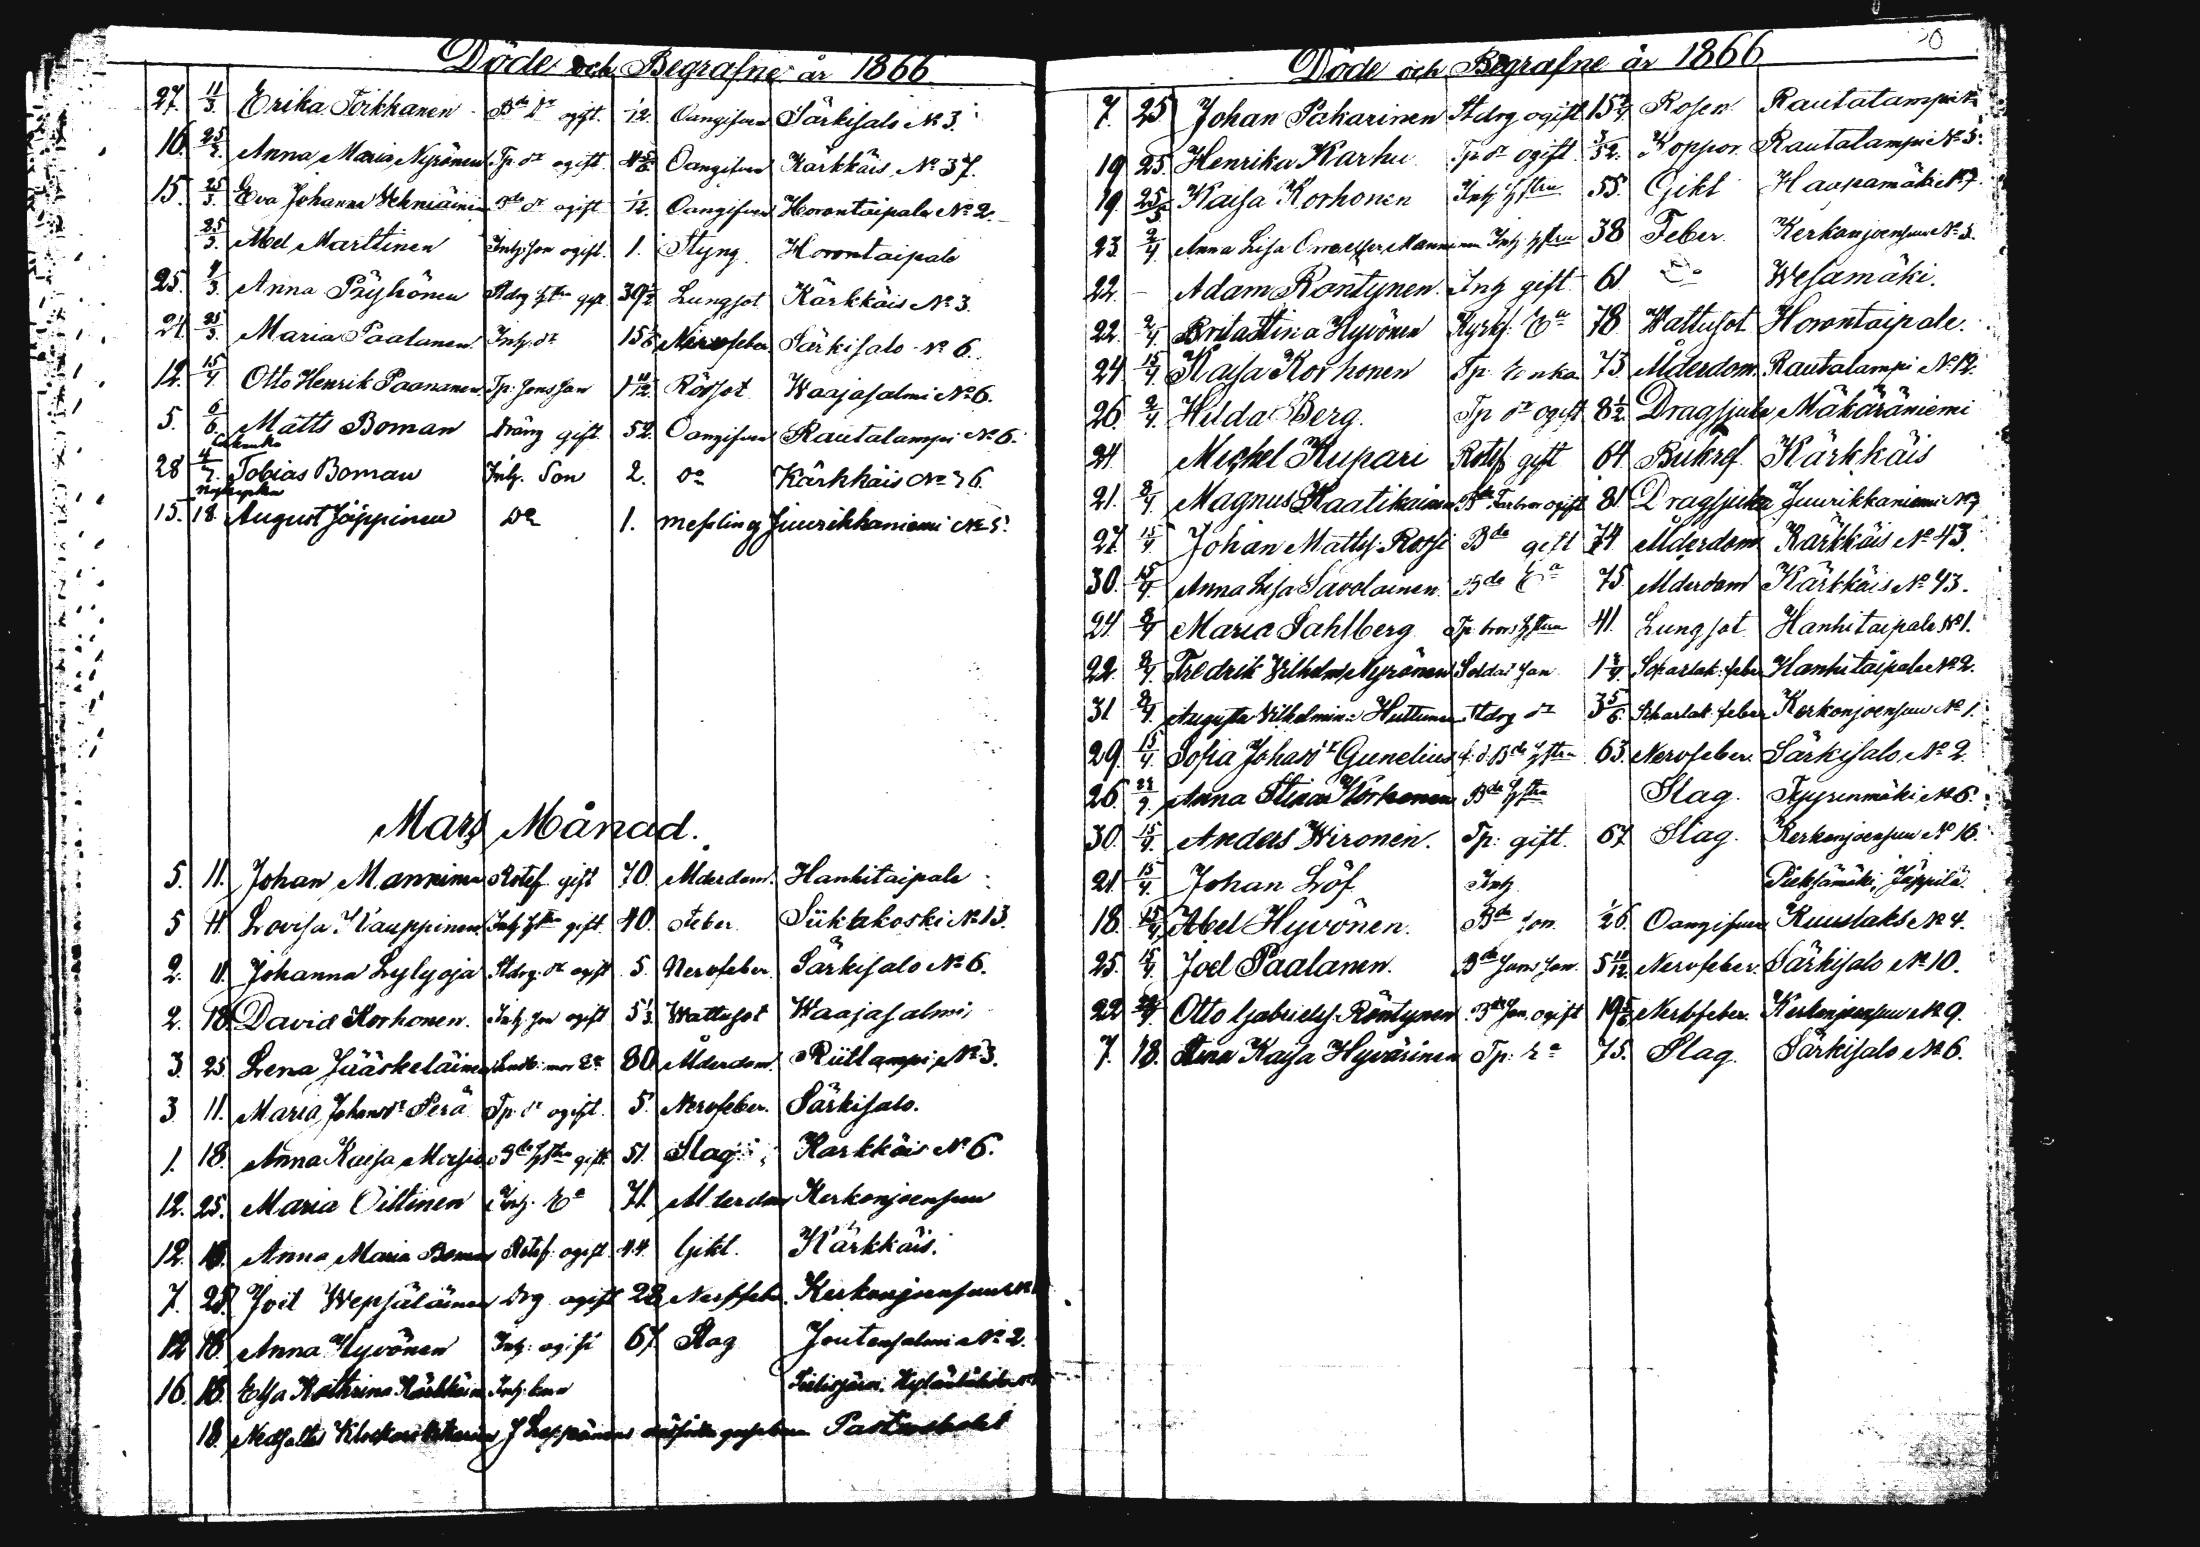 Döde och Begrafne år 1866
27. 11/3. Erika Torkkanen Bde dr ogift. 1/12. Oangifven Särkisalo No 3.
16. 25/2. Anna Maria Nyrönen Tp. dr ogift. 4 5/6. Oangifven Kärkkäis No 37.
15. 25/3. Eva Johanna Bde dr ogift 1/12. Oangifven Horontaipale No 2.
25/3. Abel Marttinen Inh. son ogift. 1. Styng. Horontaipale
25. 4/3. Anna Pöyhönen Stdrg hstru gift 39 1/2 Lungsot Kärkkäis No 3.
24. 25/3. Maria Paalanen. Inh. dr 15 Nervfeber Särkisalo No 6.
12. 15/4 Otto Henrik Paananen Tp. sons son 1 11/12. Rödsot Waajasalmi No 6.
5. 6/6. Matts Boman Dräng gift 52. Oangifven Rautalampi No 6.
28 4/7. Tobias Boman Inh. Son 2. Do Kärkkäis No 36.
15. 18. August Jäppinen Do 1. messling Juurikkaniemi No 5.
Mars Månad.
5. 11. Johan Manninen Rotef. gift 70. Ålderdom. Hankitaipale
5 11. Lovisa Kauppinen Inh. hstru gift 40. Feber Siikakoski No 13.
2. 11. Johanna Lylyoja Stdrg. dr ogift 5. Nervfeber. Särkisalo No 6.
2. 18. David Korhonen. Inh. son ogift 5 1/3. Wattusot Waajasalmi
3. 25 Lena Jääskeläinen mor Ea 80 Ålderdom. Riitlampi No 3.
3 11. Maria Johansdr Perä Tp. dr ogift. 5. Nervfeber. Särkisalo.
1. 18. Anna Kaisa Bde hstru gift. 51. Slag Karkkäis No 6.
12. 25. Maria Oittinen Inh. Ea 71 Ålderdom Kerkonjoensuu
12. 18. Anna Maria Boman Rotef. ogift. 44. Gikt. Kärkkäis.
7. 25. Joel Wepsäläinen Drg ogift 28 Nervfeber. Kerkonjoensuu No
12 18. Anna Hyvönen Inh. ogift 67 Slag Joutensalmi No 2.
16. 18. Elsa Kathrina Kärkkäin Inh.
18. J Leppänens
Döde och Begrafne år 1866
7. 25 Johan Pakarinen Stdrg ogift 15 3/4 Rosen Rautalampi
19 25. Henrika Karhu Tp dr ogift 3/52. Koppor. Rautalampi No 5.
19. 25/3 Kaisa Korhonen Inh hstru 55. Gikt Haapamäki No 7.
23. 2/4. Anna Lisa Manninen Inh hstru 38 Feber. Kerkonjoensuu No 3.
22. – Adam Röntynen. Inh gift 61 Do Wesamäki.
22. 2/4. Brita Stina Hyvönen Kyrkf. Ea 78 Wattusot Horontaipale.
24. 15/4. Kaisa Korhonen Tp. enka 73 Ålderdom. Rautalampi No 12.
26. 2/4. Hilda Berg. Tp dr ogift 8 1/2. Dragsjuka Mäkäräniemi
24. Michel Kupari Rotef gift 64 Bukref. Kärkkäis
21. 8/4 Magnus Kaatikainen Bde Farbror ogift 81 Dragsjuka Juurikkaniemi No 7
27. 15/4 Johan Matts. Rossi Bde gift 74 Ålderdom Kärkkäis No 43.
30. 15/4. Anna Lisa Savolainen Bde Ea 75. Ålderdom Kärkkäis No 43.
24. 8/4 Maria Sahlberg Tp. brors hstru 41. Lungsot Hanhitaipale No 1.
22. 8/4. Fredrik Vilhelm Nyrönen Soldat son 1 3/4. Skarlak. feber Hanhitaipale No 2.
31 8/4. Augusta Vilhelmina Huttunen Stdrg dr 3 5/6. Skarlak. feber Kerkonjoensuu No 1.
29. 15/4. Sofia Johansdr Gunelius f. d. Bde hstru 63. Nervfeber. Särkisalo No 2.
26. 22/4. Anna Stina Korhonen Bde hstru Slag. Tyyrinmäki No 6.
30. 15/4. Anders Wironen. Tp. gift. 67 Slag. Kerkonjoensuu No 16.
21. 15/4. Johan Löf Inh. Pieksämäki, Jäppilä.
18. 15/4. Abel Hyvönen. Bde son. 1/26. Oangifven Kuuslaks No 4.
25. 15/4. Joel Paalanen. Bde sons son. 5 10/12. Nervfeber. Särkisalo No 10.
22 22/4. Otto Gabriels. Röntynen Bde son. ogift 19 5/6 Nervfeber. Kerkonjoensuu No 9.
7. 18. Anna Kaisa Hyvärinen Tp. Ea 75. Slag. Särkisalo No 6.